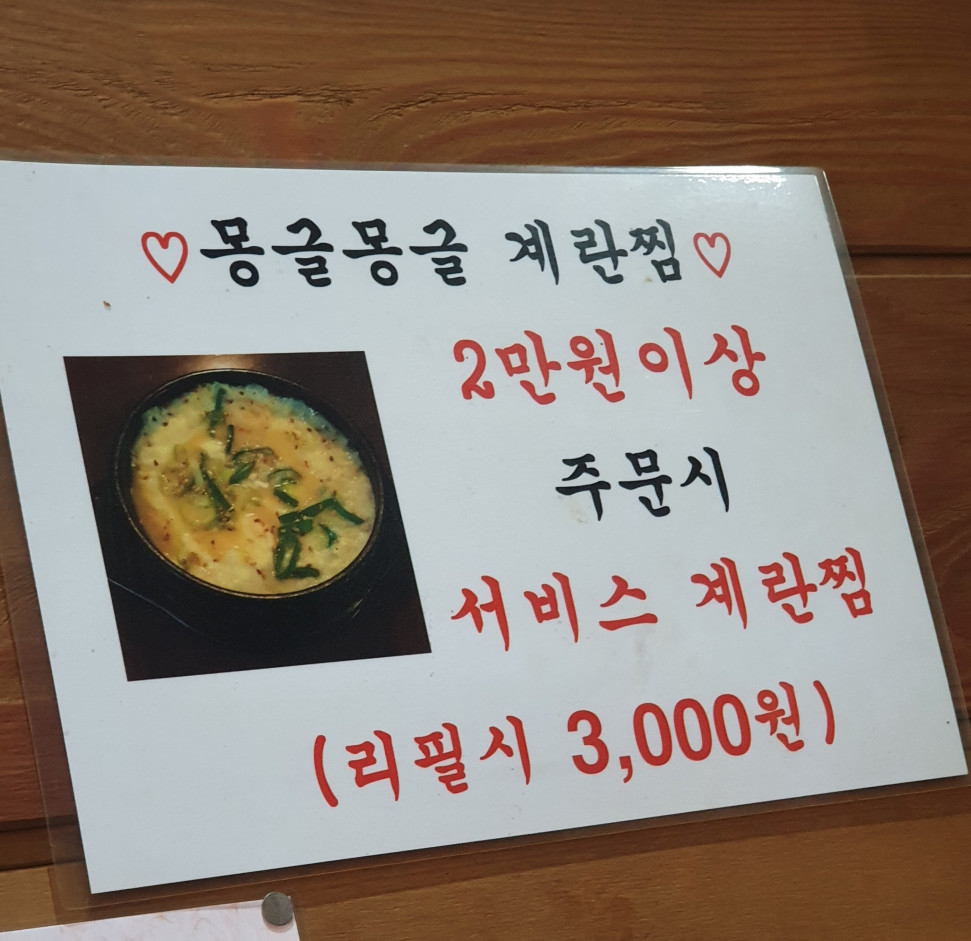 ♡몽글몽글 계란찜♡
2만원이상
주문시
서비스 계란찜
(리필시 3,000원)